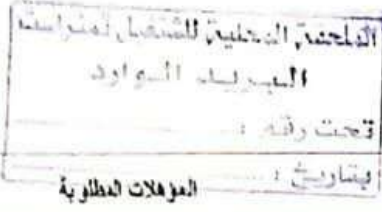 الملحقة المحلية للتشغيل تمنراست
البريد الوارد
تحت رقم :
بتاريخ :
المؤهلات المطلوبة